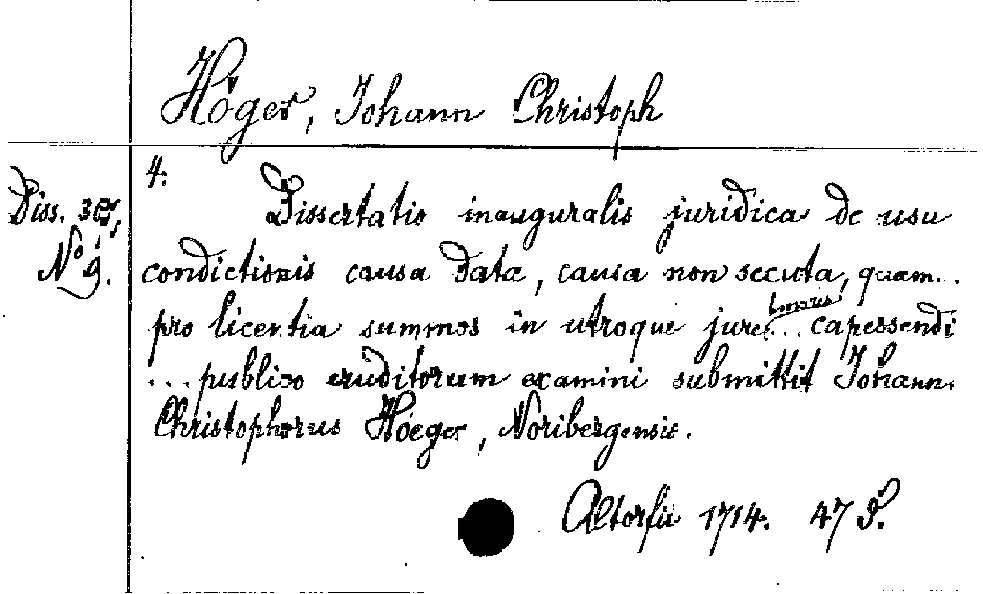 Höger, Johann Christoph
4.
Diss.
No 9.
Dissertatio inauguralis juridica de usu
condictionis causa data, causa non secuta, quam...
pro licentia summos in utroque jure... honores capessendi
... publico eruditorum examini submittit Johann.
Christophorus Höeger, Noribergensis.
Altorfii 1714. 47 S.